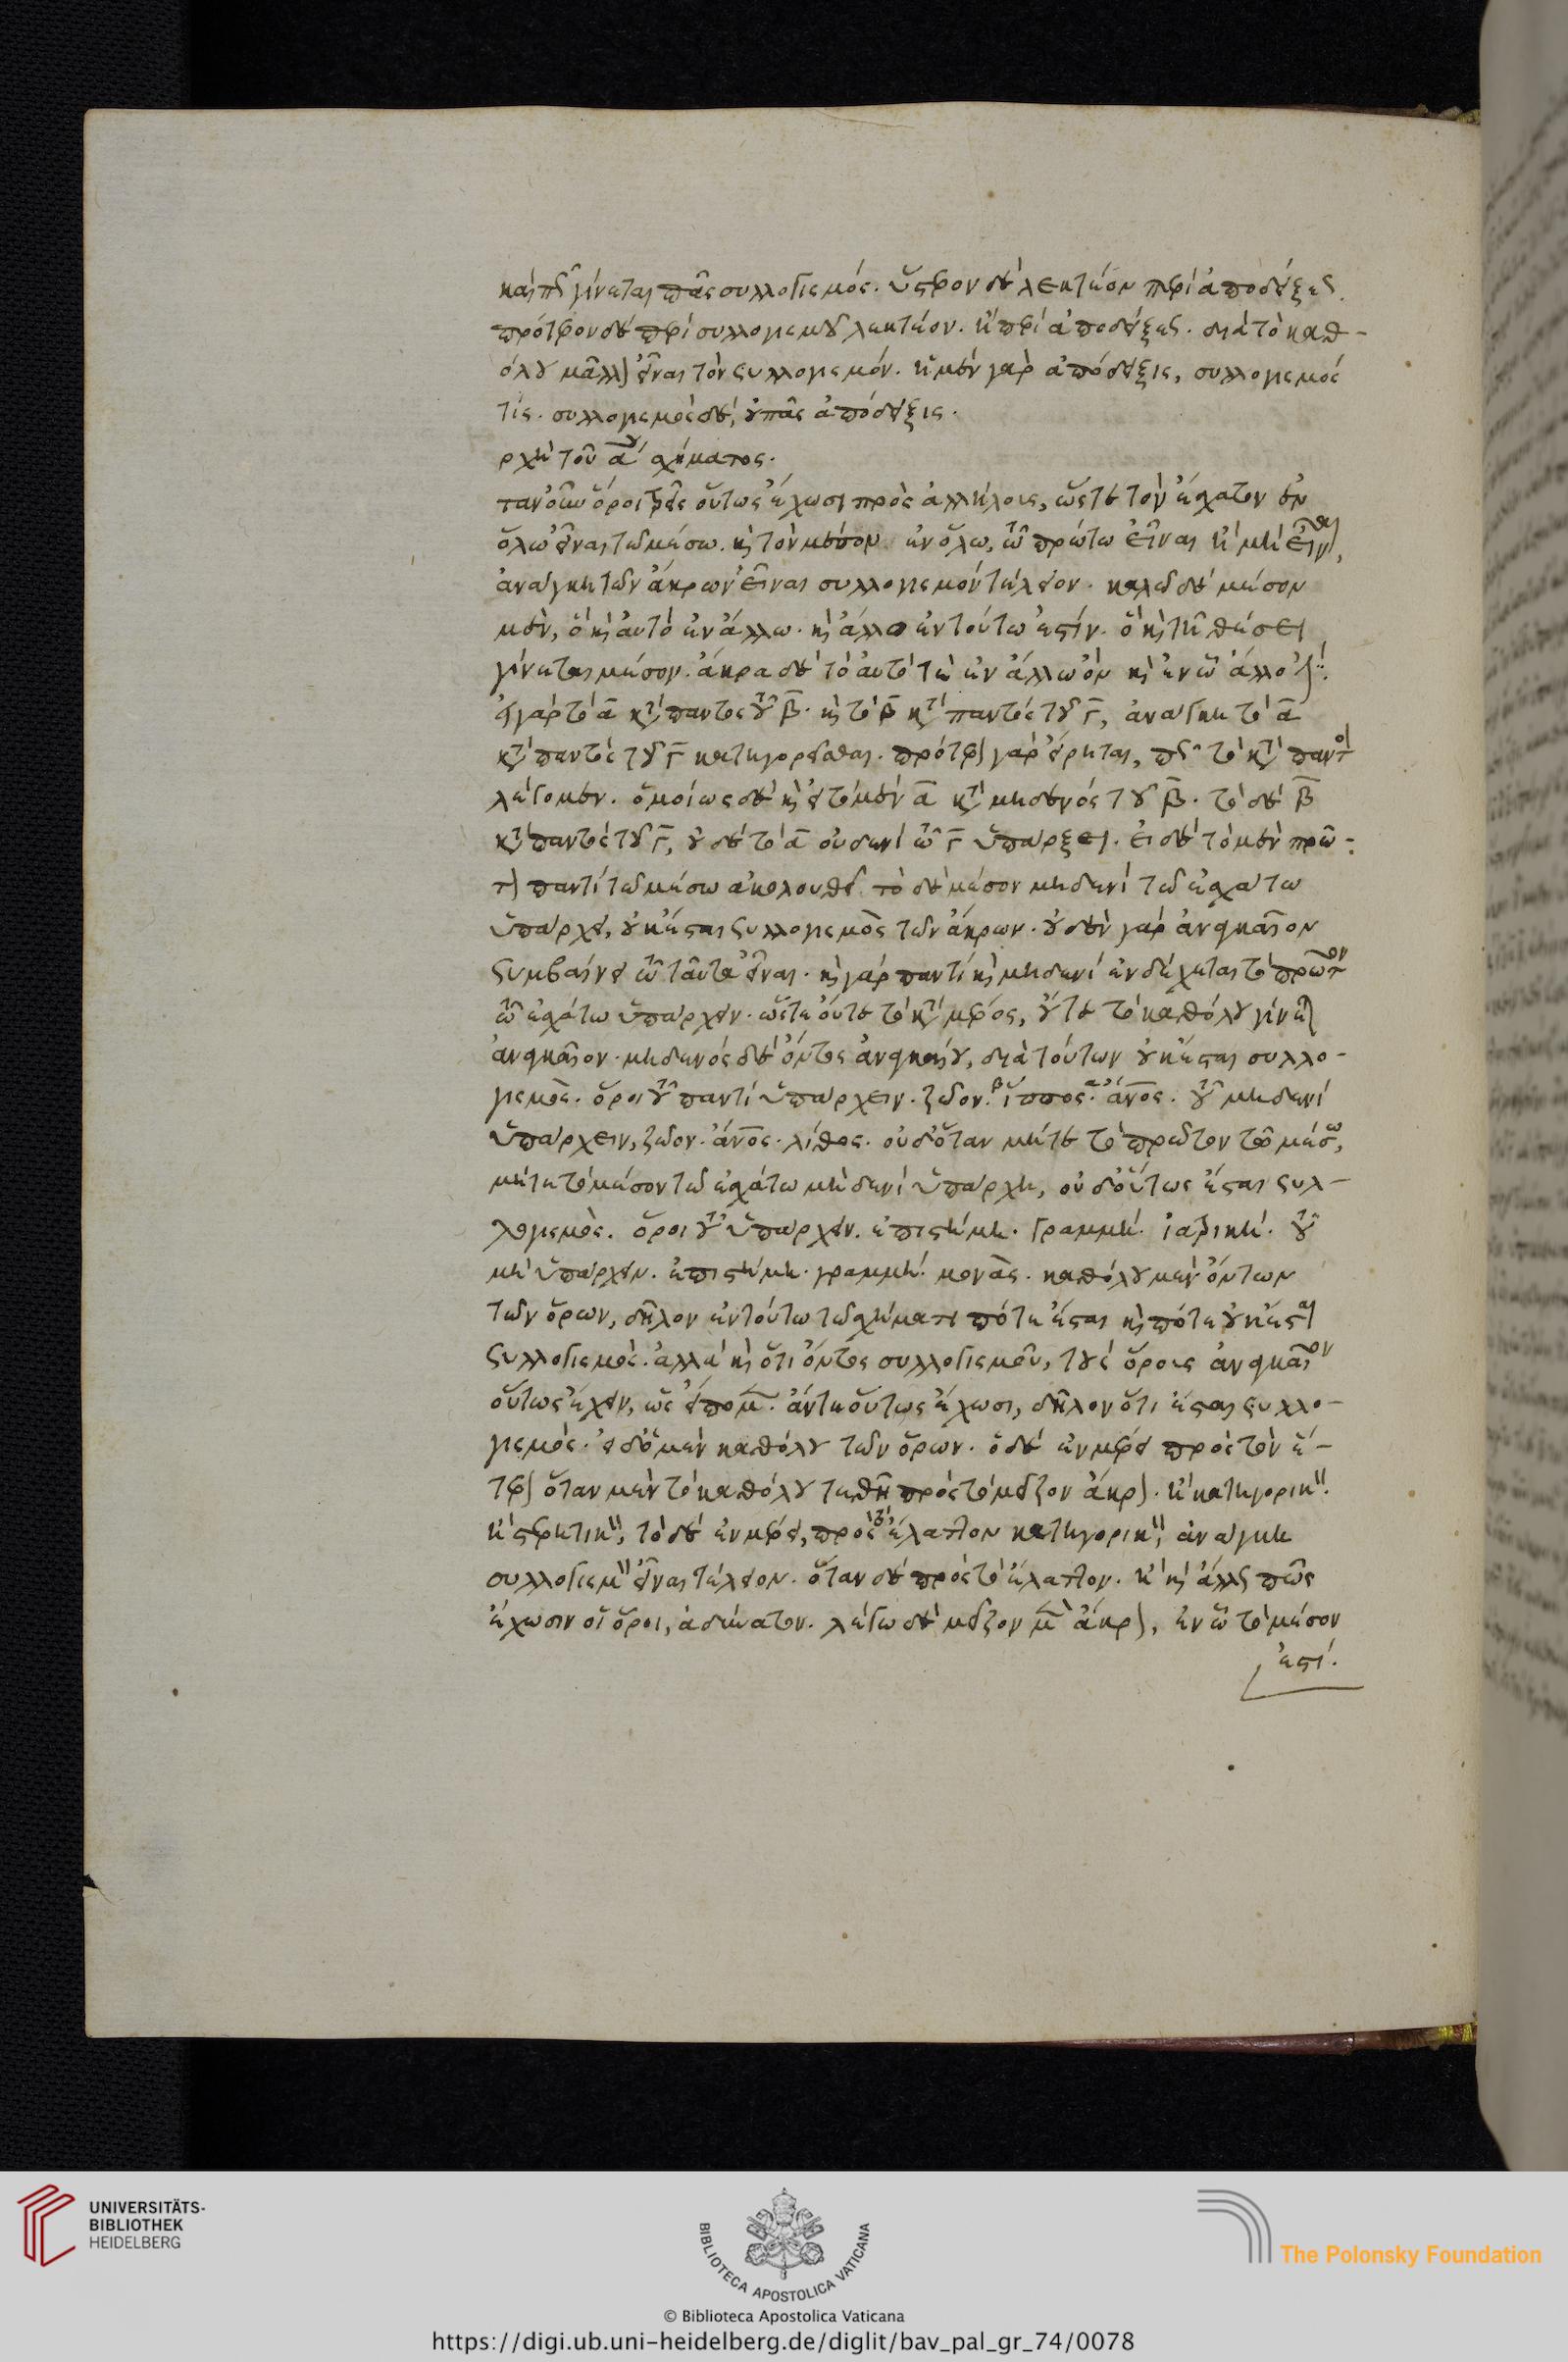 καὶ πῶς γίνεται πᾶς συλλογισμός. ὕστερον δὲ λεκτέον περὶ ἀποδείξεως.
πρότερον δὲ περὶ συλλογισμοῦ λεκτέον. ἢ περὶ ἀποδείξεως. διὰ τὸ καθ-
όλου μᾶλλον εἶναι τὸν συλλογισμόν. ἡ μὲν γὰρ ἀπόδειξις, συλλογισμός
τίς. συλλογισμὸς δὲ, οὐ πᾶς ἀπόδειξις.
ρχὴ τοῦ α΄ σχήματος.
ταν οὖν ὅροι τρεῖς οὕτως ἔχωσι πρὸς ἀλλήλοις, ὥστε τὸν ἔσχατον ἐν
ὅλῳ εἶναι τῷ μέσῳ. καὶ τὸν μέσον ἐν ὅλῳ, τῷ πρώτῳ εἶναι ἢ μὴ εἶναι,
ἀνάγκη τῶν ἄκρων εἶναι συλλογισμὸν τέλειον. καλῶ δὲ μέσον
μὲν, ὃ καὶ αὐτὸ ἐν ἄλλω. καὶ ἄλλο ἐν τούτω ἐστίν. ὃ καὶ τῆ θέσει
γίνεται μέσον. ἄκρα δὲ τὸ αὐτό τε ἐν ἄλλω ὂν καὶ ἐν ᾧ ἄλλο ἐστίν.
εἰ γὰρ τὸ α κατὰ παντὸς τοῦ β. καὶ τὸ β κατὰ παντὸς τοῦ γ, ἀνάγκη τὸ α
κατὰ παντὸς τοῦ γ κατηγορεῖσθαι. πρότερον γὰρ εἴρηται, πῶς τὸ κατὰ παντὸς
λέγομεν. ὁμοίως δὲ καὶ εἰ τὸ μὲν α κατὰ μηδενὸς τοῦ β. τὸ δὲ β
κατὰ παντὸς τοῦ γ, οὐδὲ τὸ α οὐδενὶ τῷ γ ὑπάρξει. εἰ δὲ τὸ μὲν πρῶ-
τον παντὶ τῷ μέσω ἀκολουθεῖ τὸ δὲ μέσον μηδενὶ τῷ ἐσχάτω
ὑπάρχει, οὐκ ἔσται συλλογισμὸς τῶν ἄκρων. οὐδὲν γὰρ ἀναγκαῖον
συμβαίνει τῷ ταῦτα εἶναι. καὶ γὰρ παντὶ καὶ μηδενὶ ἐνδέχεται τὸ πρῶτον
τῷ ἐσχάτω ὑπάρχειν. ὥστε οὔτε τὸ κατὰ μέρος, οὔτε τὸ καθόλου γίνεται
ἀναγκαῖον. μηδενὸς δὲ ὄντος ἀναγκαίου, διὰ τούτων οὐκ ἔσται συλλο-
γισμὸς. ὅροι τοῦ παντὶ ὑπάρχειν. ζῶον. ἵππος. ἄνος. τοῦ μηδενὶ
ὑπάρχειν, ζῶον. ἄνος. λίθος. οὐδ' ὅταν μήτε τὸ πρῶτον τῷ μέσω,
μήτε τὸ μέσον τῷ ἐσχάτω μηδενὶ ὑπάρχη, οὐδ' οὕτως ἔσται συλ-
λογισμὸς. ὅροι τοῦ ὑπάρχειν. ἐπιστήμη. γραμμή. ἰατρική. τοῦ
μὴ ὑπάρχειν. ἐπιστήμη. γραμμή. μονὰς. καθόλου μὲν ὄντων
τῶν ὅρων, δῆλον ἐν τούτω τῷ σχήματι πότε ἔσται καὶ πότε οὐκ ἔσται
συλλογισμὸς. ἀλλὰ καὶ ὅτι ὄντος συλλογισμοῦ, τοὺς ὅρους ἀναγκαῖον
οὕτως ἔχειν, ὡς εἴπομεν. ἄν τε οὕτως ἔχωσι, δῆλον ὅτι ἔσται συλλο-
γισμὸς. εἰ δ' ὁ μὲν καθόλου τῶν ὅρων. ὁ δὲ ἐν μέρει πρὸς τὸν ἕ-
τερον ὅταν μὲν τὸ καθόλου τεθῆ πρὸς τὸ μεῖζον ἄκρον. ἢ κατηγορικὸν.
ἢ στερητικὸν, τὸ δὲ ἐν μέρει, πρὸς τὸ ἔλαττον κατηγορικὸν, ἀνάγκη
συλλογισμὸν εἶναι τέλειον. ὅταν δὲ πρὸς τὸ ἔλαττον. ἢ καὶ ἄλλως πῶς
ἔχωσιν οἱ ὅροι, ἀδύνατον. λέγω δὲ μεῖζον μὲν ἄκρον, ἐν ᾧ τὸ μέσον
ἐστί.
UNIVERSITÄTS-
BIBLIOTHEK
HEIDELBERG
BIBLIOTECA APOSTOLICA VATICANA
The Polonsky Foundation
© Biblioteca Apostolica Vaticana
https://digi.ub.uni-heidelberg.de/diglit/bav_pal_gr_74/0078